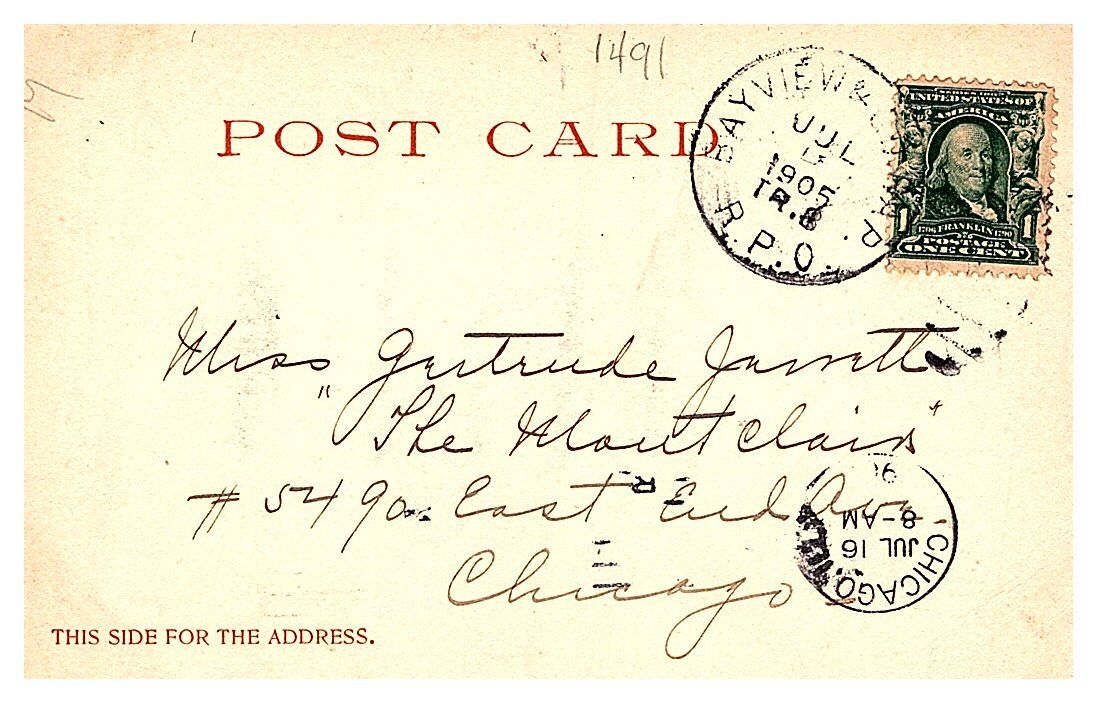 1491
POST CARD
BAYVIEW &
JUL
1905
TR. 8
R.P.O.
UNITED STATES OF
AMERICA
1 1
1706 FRANKLIN 1790
POSTAGE
ONE CENT
Miss Gertrude Jarrett
"The Montclair"
# 5490 East End Ave.
Chicago
R
CHICAGO, ILL.
JUL 16
8-AM
THIS SIDE FOR THE ADDRESS.